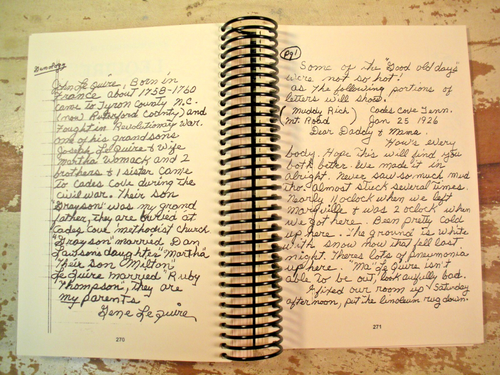 Genealogy
John Le Quire, Born in
France about 1758-1760
came to Tyron County N.C.
(now Rutherford County) and
Fought in Revolutionary War.
one of his grandsons
Joseph LeQuire & Wife
Martha Womack and 2
brothers & 1 sister Came
to Cades Cove during the
civil war. Their son
"Grayson" was my grand
father, they are buried at
Cades Cove methodist church
"Grayson" married Dan
Lawsons daughter "Martha"
Their son "Milton"
LeQuire married "Ruby
Thompson", they are
my parents
Gene LeQuire
270
Pg 1
Some of the "Good old days"
were not so hot!
as the following portions of
letters will show.
(Muddy Rich) Cades Cove Tenn.
Mt. Road) Jan 25 1926
Dear Daddy & Mama.
How's every
body. Hope this will find you
all better. We made it in
alright. Never saw so much mud
tho. almost stuck several times.
Nearly 11 oclock when we left
Maryville & was 2 oclock when
we got here. Been pretty cold
up here. The ground is white
with snow now that fell last
night. Theres lots of pneumonia
up here. "Ma" LeQuire isn't
able to be out, look awfully bad.
I fixed our room up Saturday
afternoon, put the linoleum rug down.
271